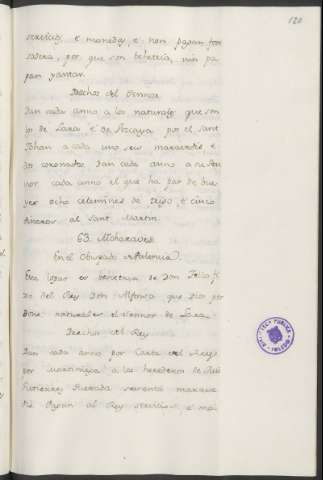 120
servicios, e monedas, e non pagan fon
sadera, por que son behetria, nin pa
gan yantar.
Derechos del Sennor
Dan cada anno a los naturales que son
los de Lara e de Vizcaya por el sant
Johan a cada uno seis maravedis, e
dos coronados. Dan cada anno a su Sen
nor cada anno el que ha par de bue
yes ocho celemines de trigo, e cinco
dineros al sant Martin.
63. Moharaves
En el Obispado de Palencia
Este logar es behetria de Don Tello fi
jo del Rey Don Alfonso que Dios per
done naturales el Sennor de Lara
Derechos del Rey
Dan cada anno por Carta del Rey
por martiniega a los herederos de Rui
Gutierrez Quexada sesenta marave
dis. Pagan al Rey servicios, e mo